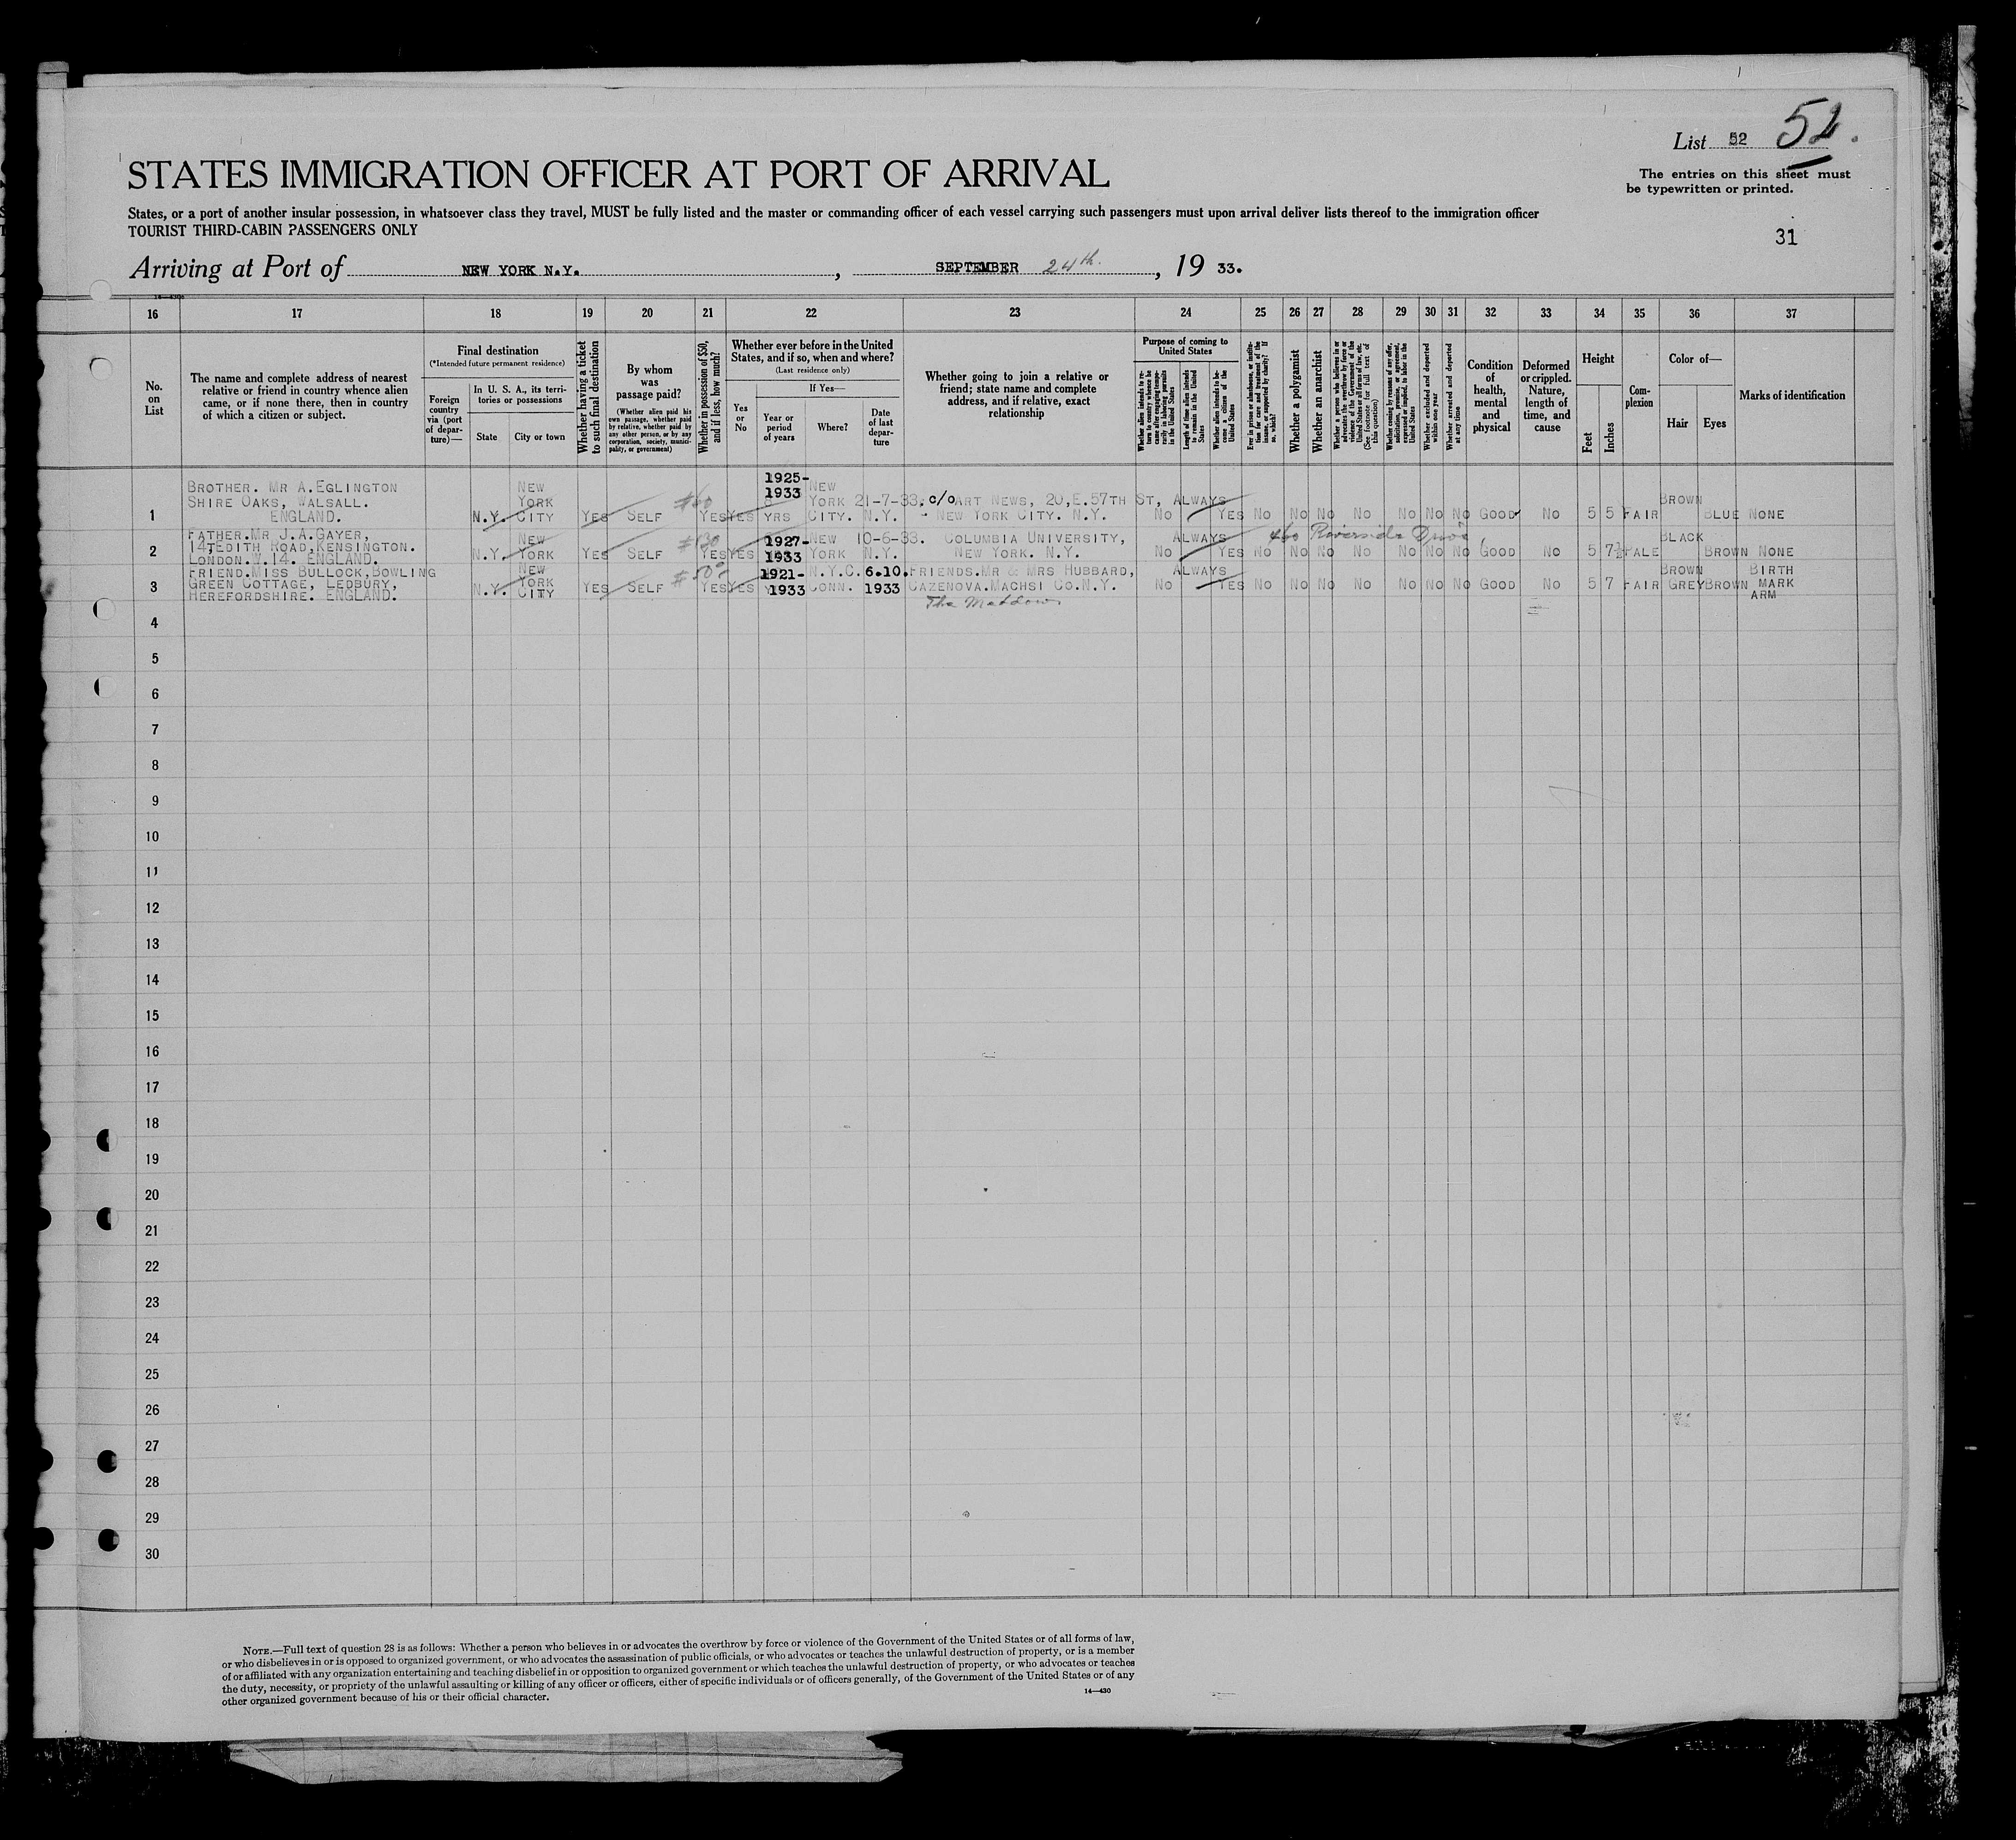 List 52 52.
STATES IMMIGRATION OFFICER AT PORT OF ARRIVAL
The entries on this sheet must
be typewritten or printed.
States, or a port of another insular possession, in whatsoever class they travel, MUST be fully listed and the master or commanding officer of each vessel carrying such passengers must upon arrival deliver lists thereof to the immigration officer
TOURIST THIRD-CABIN PASSENGERS ONLY
31
Arriving at Port of NEW YORK N.Y., SEPTEMBER 24th., 19 33.
16 17 18 19 20 21 22 23 24 25 26 27 28 29 30 31 32 33 34 35 36 37
No. on List
The name and complete address of nearest
relative or friend in country whence alien
came, or if none there, then in country
of which a citizen or subject.
Final destination
(*Intended future permanent residence)
Foreign country via (port of departure)—
In U. S. A., its territories or possessions
State
City or town
Whether having a ticket to such final destination
By whom was passage paid?
(Whether alien paid his own passage, whether paid by relative, whether paid by any other person, or by any corporation, society, municipality, or government)
Whether in possession of $50, and if less, how much?
Whether ever before in the United States, and if so, when and where?
(Last residence only)
Yes or No
If Yes—
Year or period of years
Where?
Date of last departure
Whether going to join a relative or
friend; state name and complete
address, and if relative, exact
relationship
Purpose of coming to United States
Whether alien intends to return to country whence he came after engaging temporarily in laboring pursuits in the United States
Length of time alien intends to remain in the United States
Whether alien intends to become a citizen of the United States
Ever in prison or almshouse, or institution for care and treatment of the insane, or supported by charity? If so, which?
Whether a polygamist
Whether an anarchist
Whether a person who believes in or advocates the overthrow by force or violence of the Government of the United States or all forms of law, etc. (See footnote for full text of this question)
Whether coming by reason of any offer, solicitation, promise, or agreement, expressed or implied, to labor in the United States
Whether excluded and deported within one year
Whether arrested and deported at any time
Condition of health, mental and physical
Deformed or crippled. Nature, length of time, and cause
Height
Feet
Inches
Complexion
Color of—
Hair
Eyes
Marks of identification
BROTHER. MR A.EGLINGTON
SHIRE OAKS, WALSALL.
ENGLAND.
1 N.Y. NEW YORK CITY YES SELF $60 YES YES 1925-1933 YRS NEW YORK CITY. 21-7-33. N.Y. c/o ART NEWS, 20,E.57TH ST, NEW YORK CITY. N.Y. NO ALWAYS YES NO NO NO NO NO NO NO GOOD NO 5 5 FAIR BROWN BLUE NONE
FATHER.MR J.A.GAYER,
147EDITH ROAD,KENSINGTON.
LONDON.W.14. ENGLAND.
2 N.Y. NEW YORK YES SELF $130 YES YES 1927-1933 NEW YORK 10-6-33. N.Y. COLUMBIA UNIVERSITY, NEW YORK. N.Y. NO ALWAYS YES NO NO NO NO NO NO NO GOOD NO 5 7½ PALE BLACK BROWN NONE
460 Riverside Drive
FRIEND.MISS BULLOCK,BOWLING
GREEN COTTAGE, LEDBURY,
HEREFORDSHIRE. ENGLAND.
3 N.Y. NEW YORK CITY YES SELF $50 YES YES 1921-1933 N.Y.C. CONN. 6.10. 1933 FRIENDS.MR & MRS HUBBARD, CAZENOVA.MACHSI CO.N.Y. NO ALWAYS YES NO NO NO NO NO NO NO GOOD NO 5 7 FAIR BROWN GREY BROWN BIRTH MARK ARM
The
4
5
6
7
8
9
10
11
12
13
14
15
16
17
18
19
20
21
22
23
24
25
26
27
28
29
30
NOTE.—Full text of question 28 is as follows: Whether a person who believes in or advocates the overthrow by force or violence of the Government of the United States or of all forms of law,
or who disbelieves in or is opposed to organized government, or who advocates the assassination of public officials, or who advocates or teaches the unlawful destruction of property, or is a member
of or affiliated with any organization entertaining and teaching disbelief in or opposition to organized government or which teaches the unlawful destruction of property, or who advocates or teaches
the duty, necessity, or propriety of the unlawful assaulting or killing of any officer or officers, either of specific individuals or of officers generally, of the Government of the United States or of any
other organized government because of his or their official character.
14—430